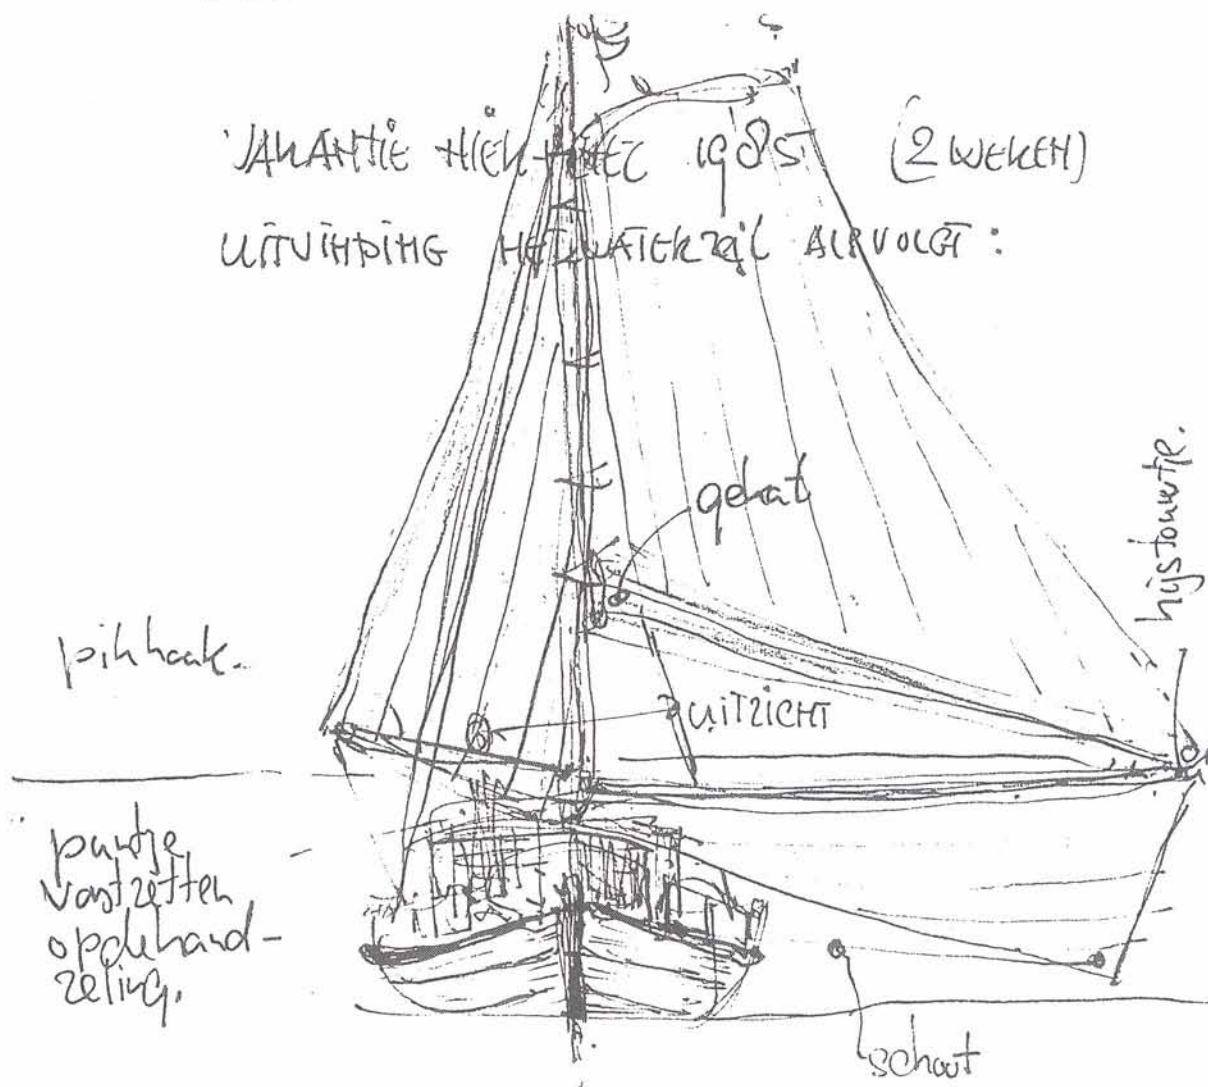 VAKANTIE HIER MEE 1985 (2 WEKEN)
UITVINDING HET WATERZEIL ALS VOLGT:
gehat
hijstouwtje.
pikhaak.
UITZICHT
puntje
vastzetten
op de hand-
reling.
schoot